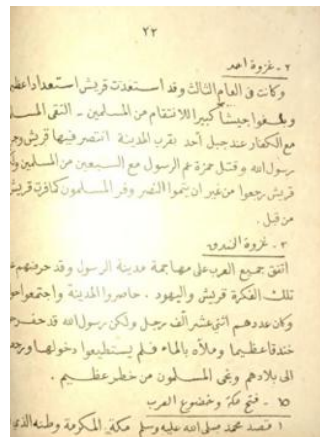 ٢٢
٢ - غزوة احد
وكانت فى العام الثالث وقد استعدت قريش استعدادا عظيم
جيشا كبيرا للانتقام من المسلمين - التقى المسل
مع الكفار عند جبل أحد بقرب المدينة انتصر فيها قريش وجر
رسول الله وقتل حمزة عم الرسول مع السبعين من المسلمين ولك
قريش رجعوا من غير ان يتموا النصر وفر المسلمون كما فرت قريش
من قبل .
٣ - غزوة الخندق
اتفق جميع العرب على مهاجمة مدينة الرسول وقد حرضهم ع
تلك الفكرة قريش واليهود . حاصروا المدينة واجتمعوا حو
وكان عددهم اثنى عشر ألف رجل ولكن رسول الله قد حفر ح
خندقا عظيما وملأه بالماء فلم يستطيعوا دخولها ورجع
الى بلادهم ونجى المسلمون من خطر عظيم .
١٥ - فتح مكة وخضوع العرب
١ قصد محمد صلى الله عليه وسلم مكة المكرمة وطنه الذى